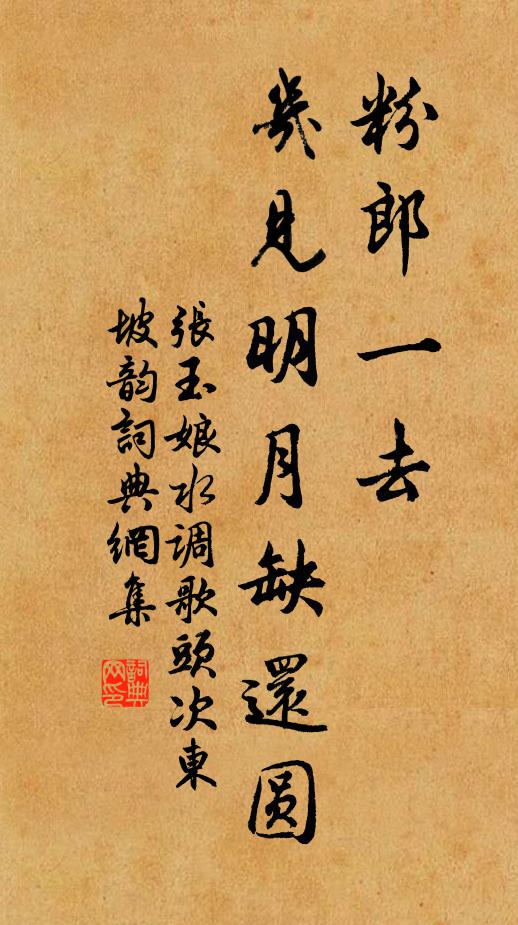 粉郎一去
幾見明月缺還圓
張玉娘水调歌頭次東
坡韵詞典網集
詞典网印